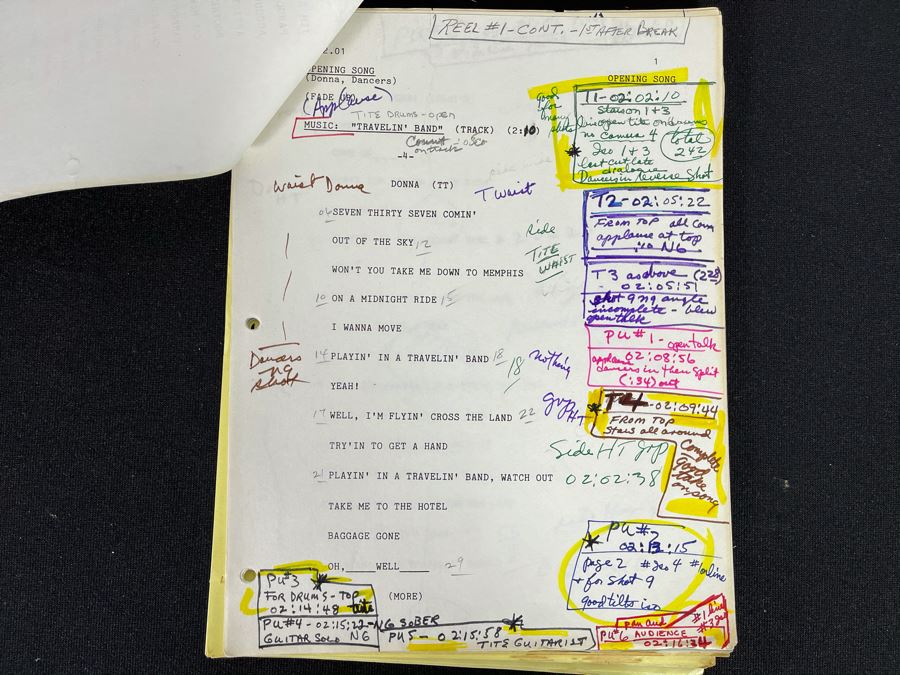 REEL #1-CONT. - 1ST AFTER BREAK
2.01
1
OPENING SONG
(Donna, Dancers)
(FADE UP)
(Applause)
TITE DRUMS-open
MUSIC: "TRAVELIN' BAND" (TRACK) (2:10)
Count
on track
-4-
waist Donna
DONNA (TT)
T waist
06 SEVEN THIRTY SEVEN COMIN'
OUT OF THE SKY 12
Ride
TITE
WAIST
WON'T YOU TAKE ME DOWN TO MEMPHIS
10 ON A MIDNIGHT RIDE 15
I WANNA MOVE
Dancers
ng
shot
14 PLAYIN' IN A TRAVELIN' BAND 18
18
nothing
YEAH!
17 WELL, I'M FLYIN' CROSS THE LAND 22
grp
HT
TRY'IN TO GET A HAND
Side HT grp
21 PLAYIN' IN A TRAVELIN' BAND, WATCH OUT
02:02:38
TAKE ME TO THE HOTEL
BAGGAGE GONE
OH,____WELL____ 29
(MORE)
OPENING SONG
good
for
many
T1-02:02:10
Stars on 1+3
open tite on drums
no camera 4
Iso 1+3
total
242
last cut late
dialogue
Dancers in reverse shot
T2-02:05:22
FROM TOP all cam
applause at top
NG
T3 as above (228)
-02:05:51
shot 9 ng angle
incomplete - blew
open talk
PU #1-open talk
applause 02:08:56
dancers in then split
(:34) out
T4-02:09:44
FROM TOP
Stars all around
Complete
good
take
on song
PU #2
02:13:15
page 2 #Iso 4 #1 online
+ for shot 9
good tilts iso
PU#3
FOR DRUMS-TOP
02:14:48 tite
PU#4-02:15:22-NG SOBER
GUITAR SOLO NG
PU5-02:15:58
TITE GUITARIST
pan aud
#1 line
PU#6 AUDIENCE
02:16:34